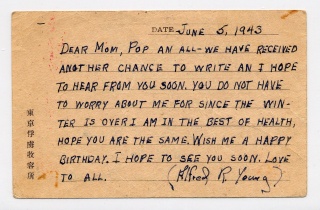 DATE June 5, 1943
DEAR MOM, POP AN ALL - WE HAVE RECEIVED
ANOTHER CHANCE TO WRITE AN I HOPE
TO HEAR FROM YOU SOON. YOU DO NOT HAVE
TO WORRY ABOUT ME FOR SINCE THE WIN-
TER IS OVER I AM IN THE BEST OF HEALTH,
HOPE YOU ARE THE SAME. WISH ME A HAPPY
BIRTHDAY. I HOPE TO SEE YOU SOON. LOVE
TO ALL. (Alfred R Young)
東京俘虜収容所